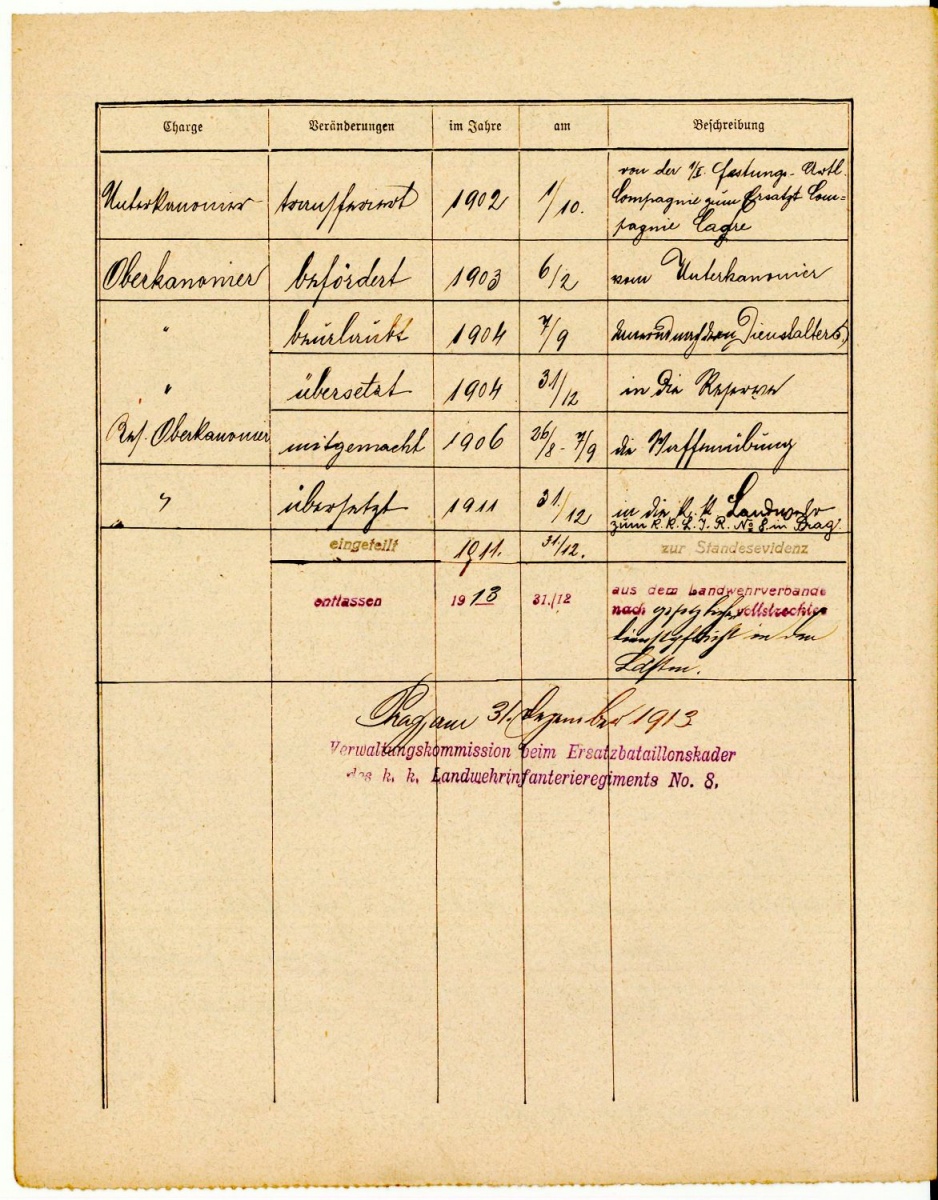 Charge Veränderungen im Jahre am Beschreibung
Unterkanonier transferiert 1902 1/10. von der 1/I. Festungs-Artl.
Compagnie zum Ersatzt Com=
pagnie Cagre
Oberkanonier befördert 1903 6/2 vom Unterkanonier
" beurlaubt 1904 7/9 Dienstalters
" übersetzt 1904 31/12 in die Reserve
Res. Oberkanonier mitgemacht 1906 26/8 - 7/9 die Waffenübung
" übersetzt 1911 31/12 in die k. k. Landwehr
zum k. k. L. I. R. No 8. in Prag.
eingeteilt 1911. 31/12. zur Standesevidenz
entlassen 1913 31./12 aus dem Landwehrverbande
nach gesetzlicher vollstreckter
Dienstpflicht in den
Prag, am 31. Dezember 1913
Verwaltungskommission beim Ersatzbataillonskader
des k. k. Landwehrinfanterieregiments No. 8.